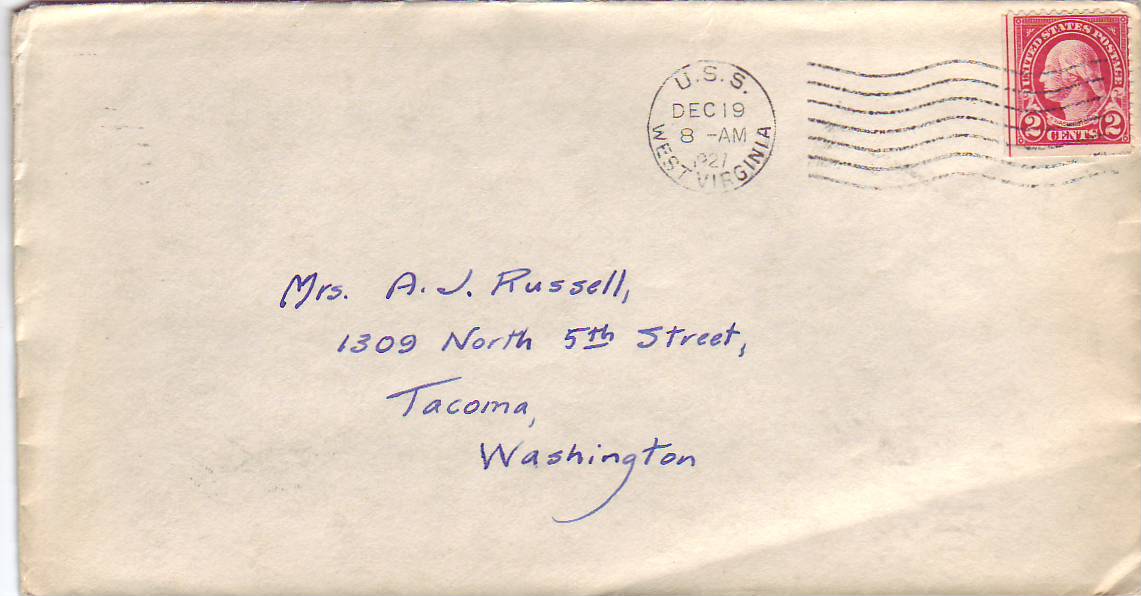 U.S.S.
DEC 19
8 -AM
1927
WEST VIRGINIA
UNITED STATES POSTAGE
2 CENTS 2
Mrs. A. J. Russell,
1309 North 5th Street,
Tacoma,
Washington